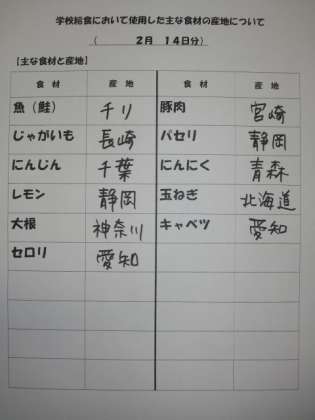 学校給食において使用した主な食材の産地について
（　2月　14日分）
【主な食材と産地】
食　材　産　地　食　材　産　地
魚（鮭）　チリ　豚肉　宮崎
じゃがいも　長崎　パセリ　静岡
にんじん　千葉　にんにく　青森
レモン　静岡　玉ねぎ　北海道
大根　神奈川　キャベツ　愛知
セロリ　愛知